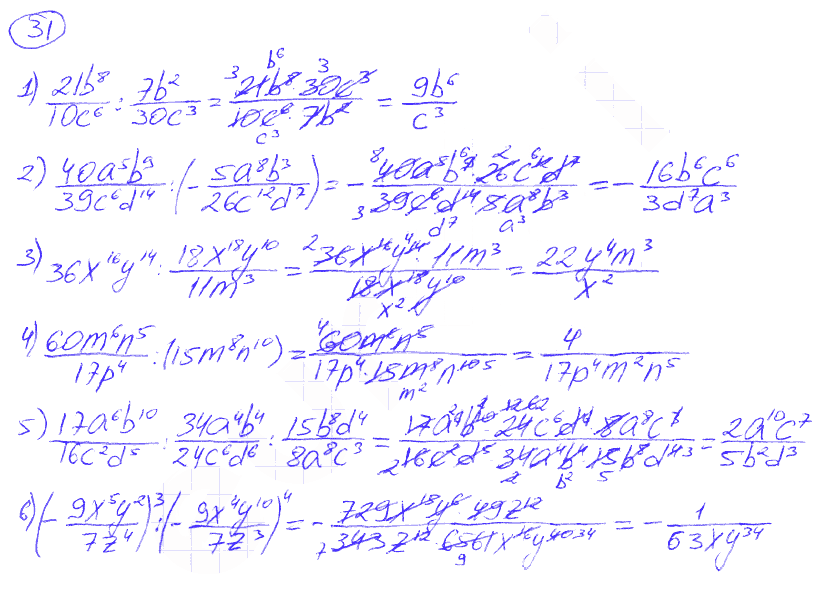 31
1) 21b⁸/10c⁶ : 7b²/30c³ = 21b⁸ · 30c³/10c⁶ · 7b² = 9b⁶/c³
2) 40a⁵b⁹/39c⁶d¹⁴ : (- 5a⁸b³/26c¹²d⁷) = - 40a⁵b⁹ · 26c¹²d⁷/39c⁶d¹⁴ · 5a⁸b³ = - 16b⁶c⁶/3d⁷a³
3) 36x¹⁶y¹⁴ : 18x¹⁸y¹⁰/11m³ = 36x¹⁶y¹⁴ · 11m³/18x¹⁸y¹⁰ = 22y⁴m³/x²
4) 60m⁶n⁵/17p⁴ : (15m⁸n¹⁰) = 60m⁶n⁵/17p⁴ · 15m⁸n¹⁰ = 4/17p⁴m²n⁵
5) 17a⁶b¹⁰/16c²d⁵ : 34a⁴b⁴/24c⁶d⁶ : 15b⁸d⁴/8a⁸c³ = = 2a¹⁰c⁷/5b²d³
6) (- 9x⁵y²/7z⁴)³ : (- 9x⁴y¹⁰/7z³)⁴ = - = - 1/63xy³⁴